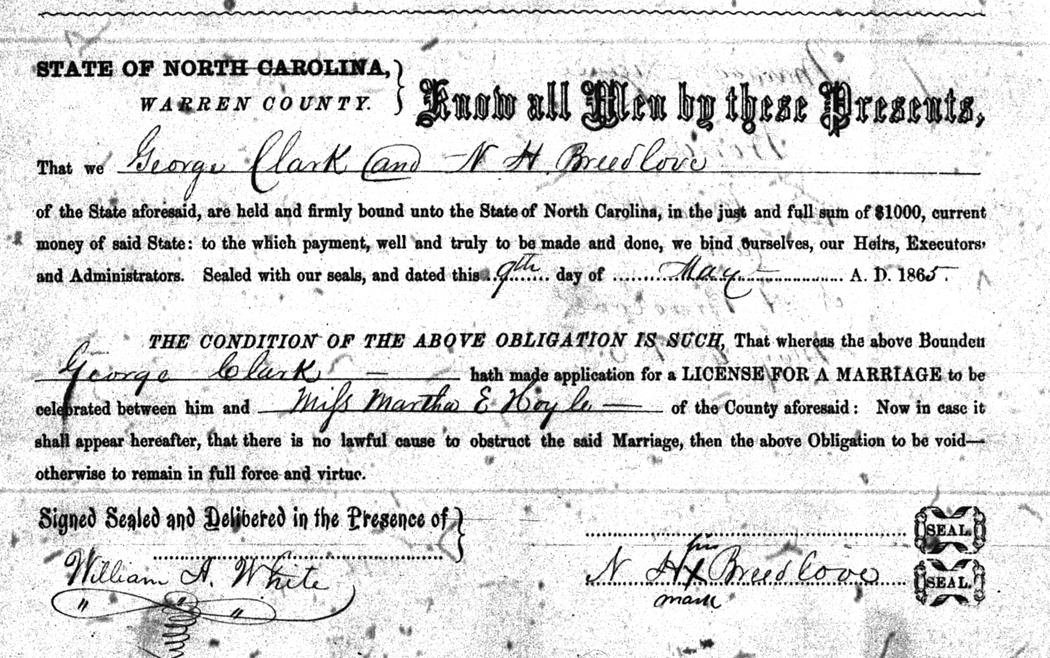 STATE OF NORTH CAROLINA,
WARREN COUNTY.
Know all Men by these Presents,
That we George Clark and N H Breedlove
of the State aforesaid, are held and firmly bound unto the State of North Carolina, in the just and full sum of $1000, current
money of said State: to the which payment, well and truly to be made and done, we bind ourselves, our Heirs, Executors,
and Administrators. Sealed with our seals, and dated this 9th day of May A. D. 1865.
THE CONDITION OF THE ABOVE OBLIGATION IS SUCH, That whereas the above Bounden
George Clark hath made application for a LICENSE FOR A MARRIAGE to be
celebrated between him and Miss Martha E Hoyle of the County aforesaid: Now in case it
shall appear hereafter, that there is no lawful cause to obstruct the said Marriage, then the above Obligation to be void—
otherwise to remain in full force and virtue.
Signed Sealed and Delibered in the Presence of
SEAL.
William A. White
his
N H x Breedlove SEAL.
mark